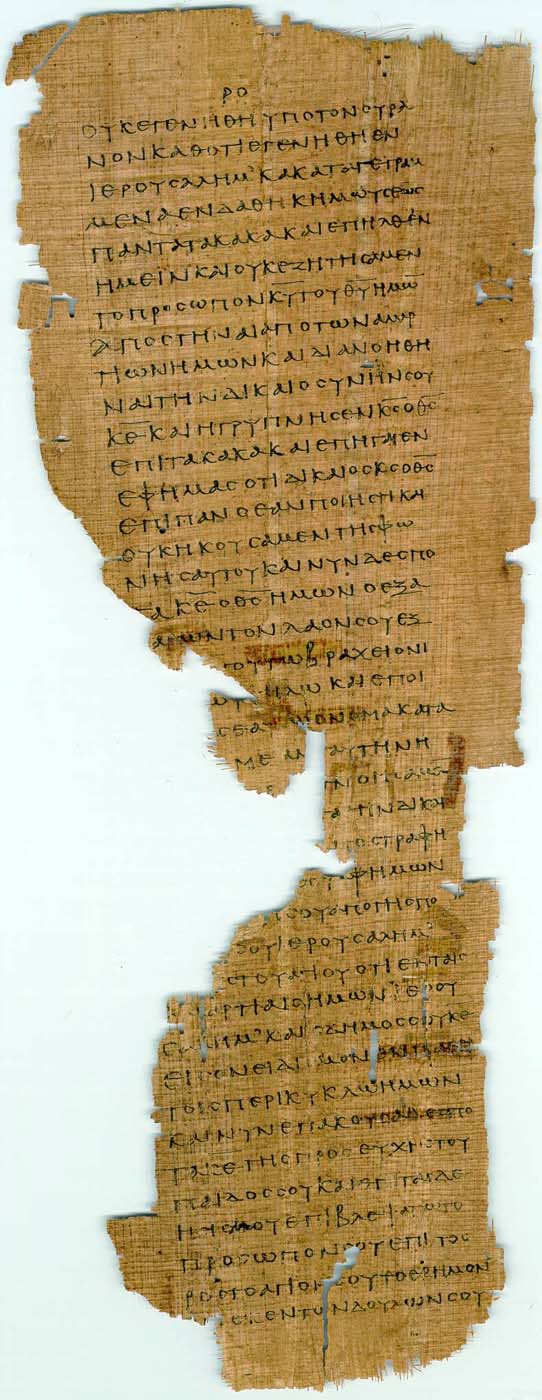 ΡΟ
ΟΥΚΕΓΕΝΗΘΗΥΠΟΤΟΝΟΥΡΑ
ΝΟΝΚΑΘΟΤΙΕΓΕΝΗΘΗΕΝ
ΙΕΡΟΥϹΑΛΗΜ’ΚΑΚΑΤΑΓΕΓΡΑΜ
ΜΕΝΑΕΝΔΑΘΗΚΗΜΩΥϹΕΩϹ
ΠΑΝΤΑΤΑΚΑΚΑΚΑΙΕΠΗΛΘΕΝ
ΗΜΕΙΝΚΑΙΟΥΚΕΖΗΤΗϹΑΜΕΝ
ΤΟΠΡΟϹΩΠΟΝΚ̅Υ̅ΤΟΥΘ̅Υ̅ΗΜΩ̅
ΑΠΟϹΤΗΝΑΙΑΠΟΤΩΝΑΜΑΡ
ΤΙΩΝΗΜΩΝΚΑΙΔΙΑΝΟΗΘΗ
ΝΑΙΤΗΝΔΙΚΑΙΟϹΥΝΗΝϹΟΥ
Κ̅Ε̅ΚΑΙΗΓΡΥΠΝΗϹΕΝΚ̅Ϲ̅ΟΘ̅Ϲ̅
ΕΠΙΤΑΚΑΚΑΚΑΙΕΠΗΓΑΓΕΝ
ΕΦΗΜΑϹΟΤΙΔΙΚΑΙΟϹΚ̅Ϲ̅ΟΘ̅Ϲ̅
ΕΠΙΠΑΝΟΕΑΝΠΟΙΗϹΗΚΑΙ
ΟΥΚΗΚΟΥϹΑΜΕΝΤΗϹΦΩ
ΝΗϹΑΥΤΟΥΚΑΙΝΥΝΔΕϹΠΟ
ΤΑΚ̅Ε̅ΟΘ̅Ϲ̅ΗΜΩΝΟΕΞΑ
ΤΟΝΛΑΟΝϹΟΥΕΞ
ΤΩΒΡΑΧΕΙΟΝΙ
ΗΛΩΚΑΙΕΠΟΙ
ΟΝΟΜΑΚΑΤΑ
ΤΑΥΤΗΝΗ
ΔΙΚΑΙ
ϹΤΡΑΦΗ
ΗΜΩΝ
ϹΟΥΑΠΟΤΗϹΠΟ
ϹΟΥΙΕΡΟΥϹΑΛΗΜ’
ΤΟΥΑΓΙΟΥΟΤΙΕΝΤΑΙϹ
ΑΡΤΙΑΙϹΗΜΩΝΙΕΡΟΥ
ΛΗΜ’ΚΑΙΟΔΗΜΟϹϹΟΥΚ̅Ε̅
ΕΙϹΟΝΕΙΔΙϹΜΟΝΕΝΠΑϹΙ
ΤΟΙϹΠΕΡΙΚΥΚΛΩΗΜΩΝ
ΚΑΙΝΥΝΕΠΑΚΟΥϹΟΝΔΕϹΠΟ
ΤΑΚ̅Ε̅ΤΗϹΠΡΟϹΕΥΧΗϹΤΟΥ
ΠΑΙΔΟϹϹΟΥΚΑΙΕΠΙΤΑΙϹΔΕ
ΗϹΕϹΙΜΟΥΕΠΙΒΛΕΨΑΤΩΤΟ
ΠΡΟϹΩΠΟΝϹΟΥΕΠΙΤΟΟ
ΡΟϹΤΟΑΓΙΟΝϹΟΥΤΟΕΡΗΜΟΝ
ΕΝΤΩΝΔΟΥΛΩΝϹΟΥ